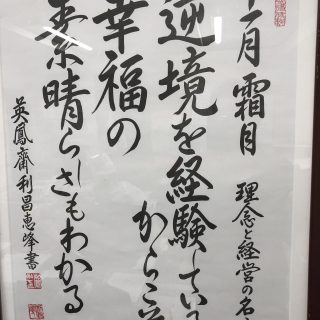 十一月 霜月
理念と経営の名
逆境を経験している
からこそ
幸福の
素晴らしさもわかる
英鳳齋利昌恵峰書